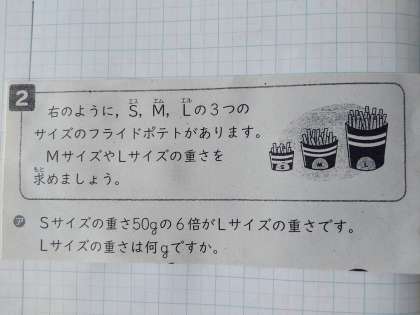 2
右のように，S，M，Lの3つの
サイズのフライドポテトがあります。
MサイズやLサイズの重さを
求めましょう。
S
M
L
㋐ Sサイズの重さ50gの6倍がLサイズの重さです。
Lサイズの重さは何gですか。